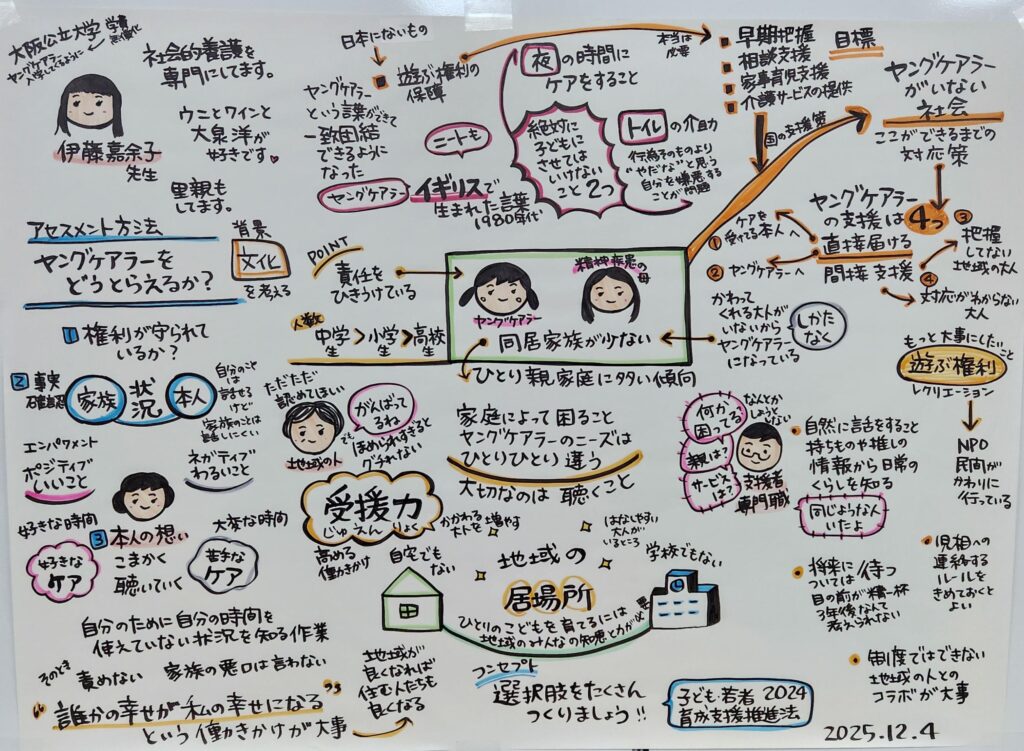 大阪公立大学
学費
無償化
ヤングケアラーに
入学してもらうように
社会的養護を
専門にしてます。
ウニとワインと
大泉洋が
好きです。
里親も
してます。
伊藤嘉余子
先生
日本にないもの
遊ぶ権利の
保障
本当は
必要
ヤングケアラー
という言葉ができて
一致団結
できるように
なった
ニートも
ヤングケアラー
イギリスで
生まれた言葉
1980年代
夜の時間に
ケアをすること
絶対に
子どもに
させては
いけない
こと2つ
トイレの介助
伝える
ものより
“やだな”と思う
自分を嫌悪する
ことが問題
早期把握
相談支援
家事育児支援
介護サービスの提供
国の支援策
目標
ヤングケアラー
がいない
社会
ここができるまでの
対応策
ヤングケアラー
の支援は4つ
直接届ける
間接支援
①
ケアを
受けてる本人へ
②
ヤングケアラーへ
③
把握
してない
地域の大人
④
対応がわからない
大人
アセスメント方法
ヤングケアラーを
どうとらえるか?
背景
文化
を考える
POINT
責任を
ひきうけている
人数
中学生>小学生>高校生
ヤングケアラー
精神疾患の
母
同居家族が少ない
ひとり親家庭に多い傾向
かわって
くれる大人が
いないから
ヤングケアラー
になっている
しかた
なく
もっと大事にしたいこと
遊ぶ権利
レクリエーション
NPO
民間が
かわりに
行っている
1 権利が守られて
いるか?
2 事実
確認
家族
状況
本人
自分のこと
は
話せる
けど
家族のことは
話しにくい
エンパワメント
ポジティブ
いいこと
ネガティブ
わるいこと
好きな時間
好きな
ケア
大変な時間
苦手な
ケア
3 本人の想い
こまかく
聴いていく
ただただ
認めてほしい
地域の人
がんばって
るね
で
ほめられすぎると
グチれない
受援力
じゅえんりょく
高める
働きかけ
かかわる
大人を増やす
家庭によって困ること
ヤングケアラーのニーズは
ひとりひとり違う
大切なのは 聴くこと
何か
困ってる?
親は?
サービス
は?
なんとか
しようと
しない
支援者
専門職
自然に言話をすること
持ちものや推しの
情報から日常の
くらしを知る
同じような人
いたよ
将来に
ついては待つ
目の前が精一杯
3年後なんて
考えられない
児相への
連絡する
ルールを
きめておくと
よい
制度ではできない
地域の人との
コラボが大事
自宅でも
ない
地域の
居場所
はなしやすい
大人が
いるところ
学校でもない
ひとりのこどもを育てるには
地域のみんなの知恵と力が必要
コンセプト
選択肢をたくさん
つくりましょう!!
自分のために自分の時間を
使えていない状況を知る作業
そのとき
責めない 家族の悪口は言わない
“誰かの幸せが私の幸せになる”
という働きかけが大事
地域が
良くなれば
住む人たちも
良くなる
子ども・若者 2024
育成支援推進法
2025.12.4